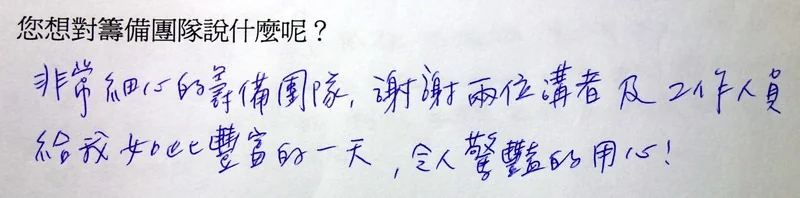 您想對籌備團隊說什麼呢？
非常細心的籌備團隊，謝謝兩位講者及工作人員
給我如此豐富的一天，令人驚豔的用心！